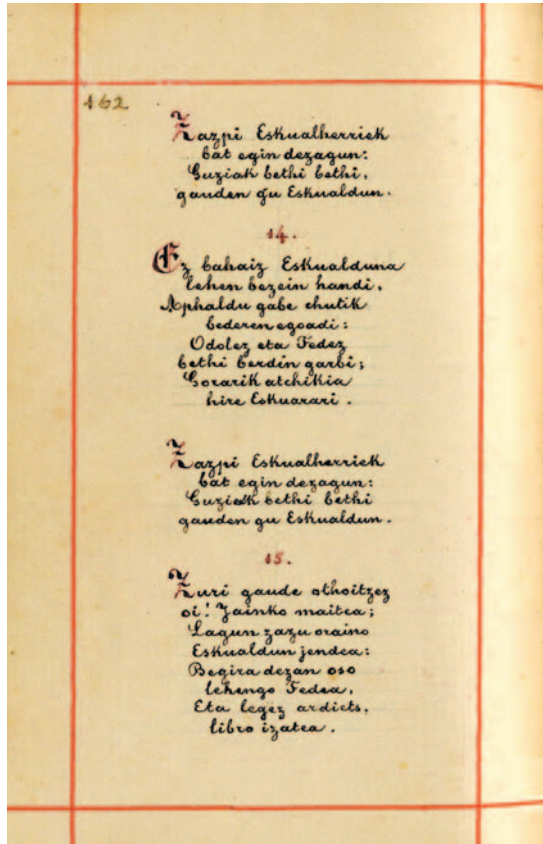 162
Zazpi Eskualherriek
bat egin dezagun:
Guziak bethi bethi,
gauden gu Eskualdun.
14.
Ez bahaiz Eskualduna
lehen bezein handi,
Aphaldu gabe chutik
bederen egoadi:
Odolez eta Fedez
bethi berdin garbi;
Gorarik atchikia
hire Eskuarari.
Zazpi Eskualherriek
bat egin dezagun:
Guziak bethi bethi
gauden gu Eskualdun.
15.
Zuri gaude othoitzez
oi! Jainko maitea;
Lagun zazu oraino
Eskualdun jendea:
Begira dezan oso
lehengo Fedea,
Eta legez ardiets,
libro izatea.